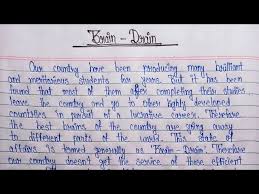 Brain - Drain
Our country have been producing many brilliant
and meritorious students for years. But it has been
found that most of them after completing their studies
leave the country and go to other highly developed
countries in pursuit of a lucrative career. Therefore
the best brains of the country are going away
to different parts of the world. This state of
affairs is termed generally as 'Brain-Drain'. Therefore
our country doesn't get the service of these efficient